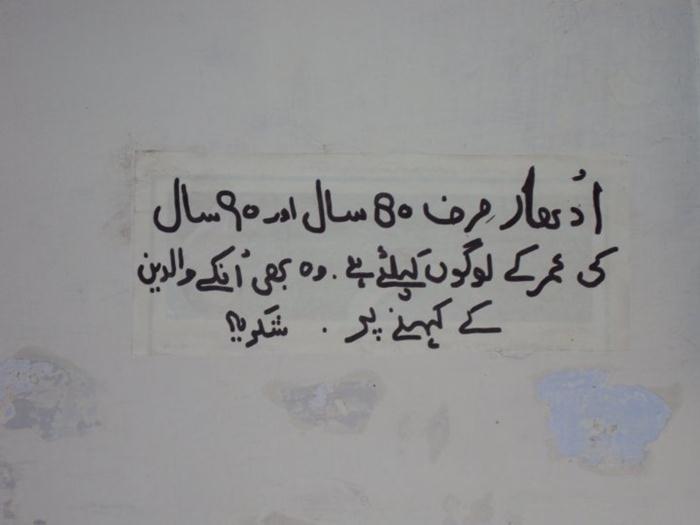 اُدھار صرف 80 سال اور ۹۰ سال
کی عمر کے لوگوں کیلئے ہے . وہ بھی اُنکے والدین
کے کہنے پر . شکریہ